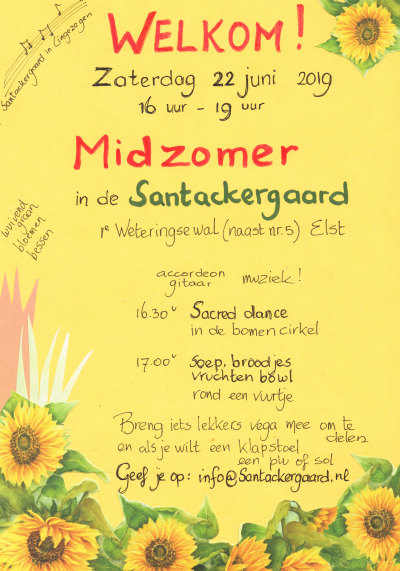 WELKOM!
Zaterdag 22 juni 2019
16 uur - 19 uur
Santackergaard in Lingezegen
Midzomer
in de Santackergaard
1e Weteringsewal (naast nr. 5) Elst
wuivend
graan
bloemen
bessen
accordeon
gitaar
muziek!
16.30 u Sacred dance
in de bomencirkel
17.00 u Soep, broodjes
vruchten bowl
rond een vuurtje
Breng iets lekkers vega mee om te
delen
en als je wilt een klapstoel
een plu of sol
Geef je op: info@Santackergaard.nl